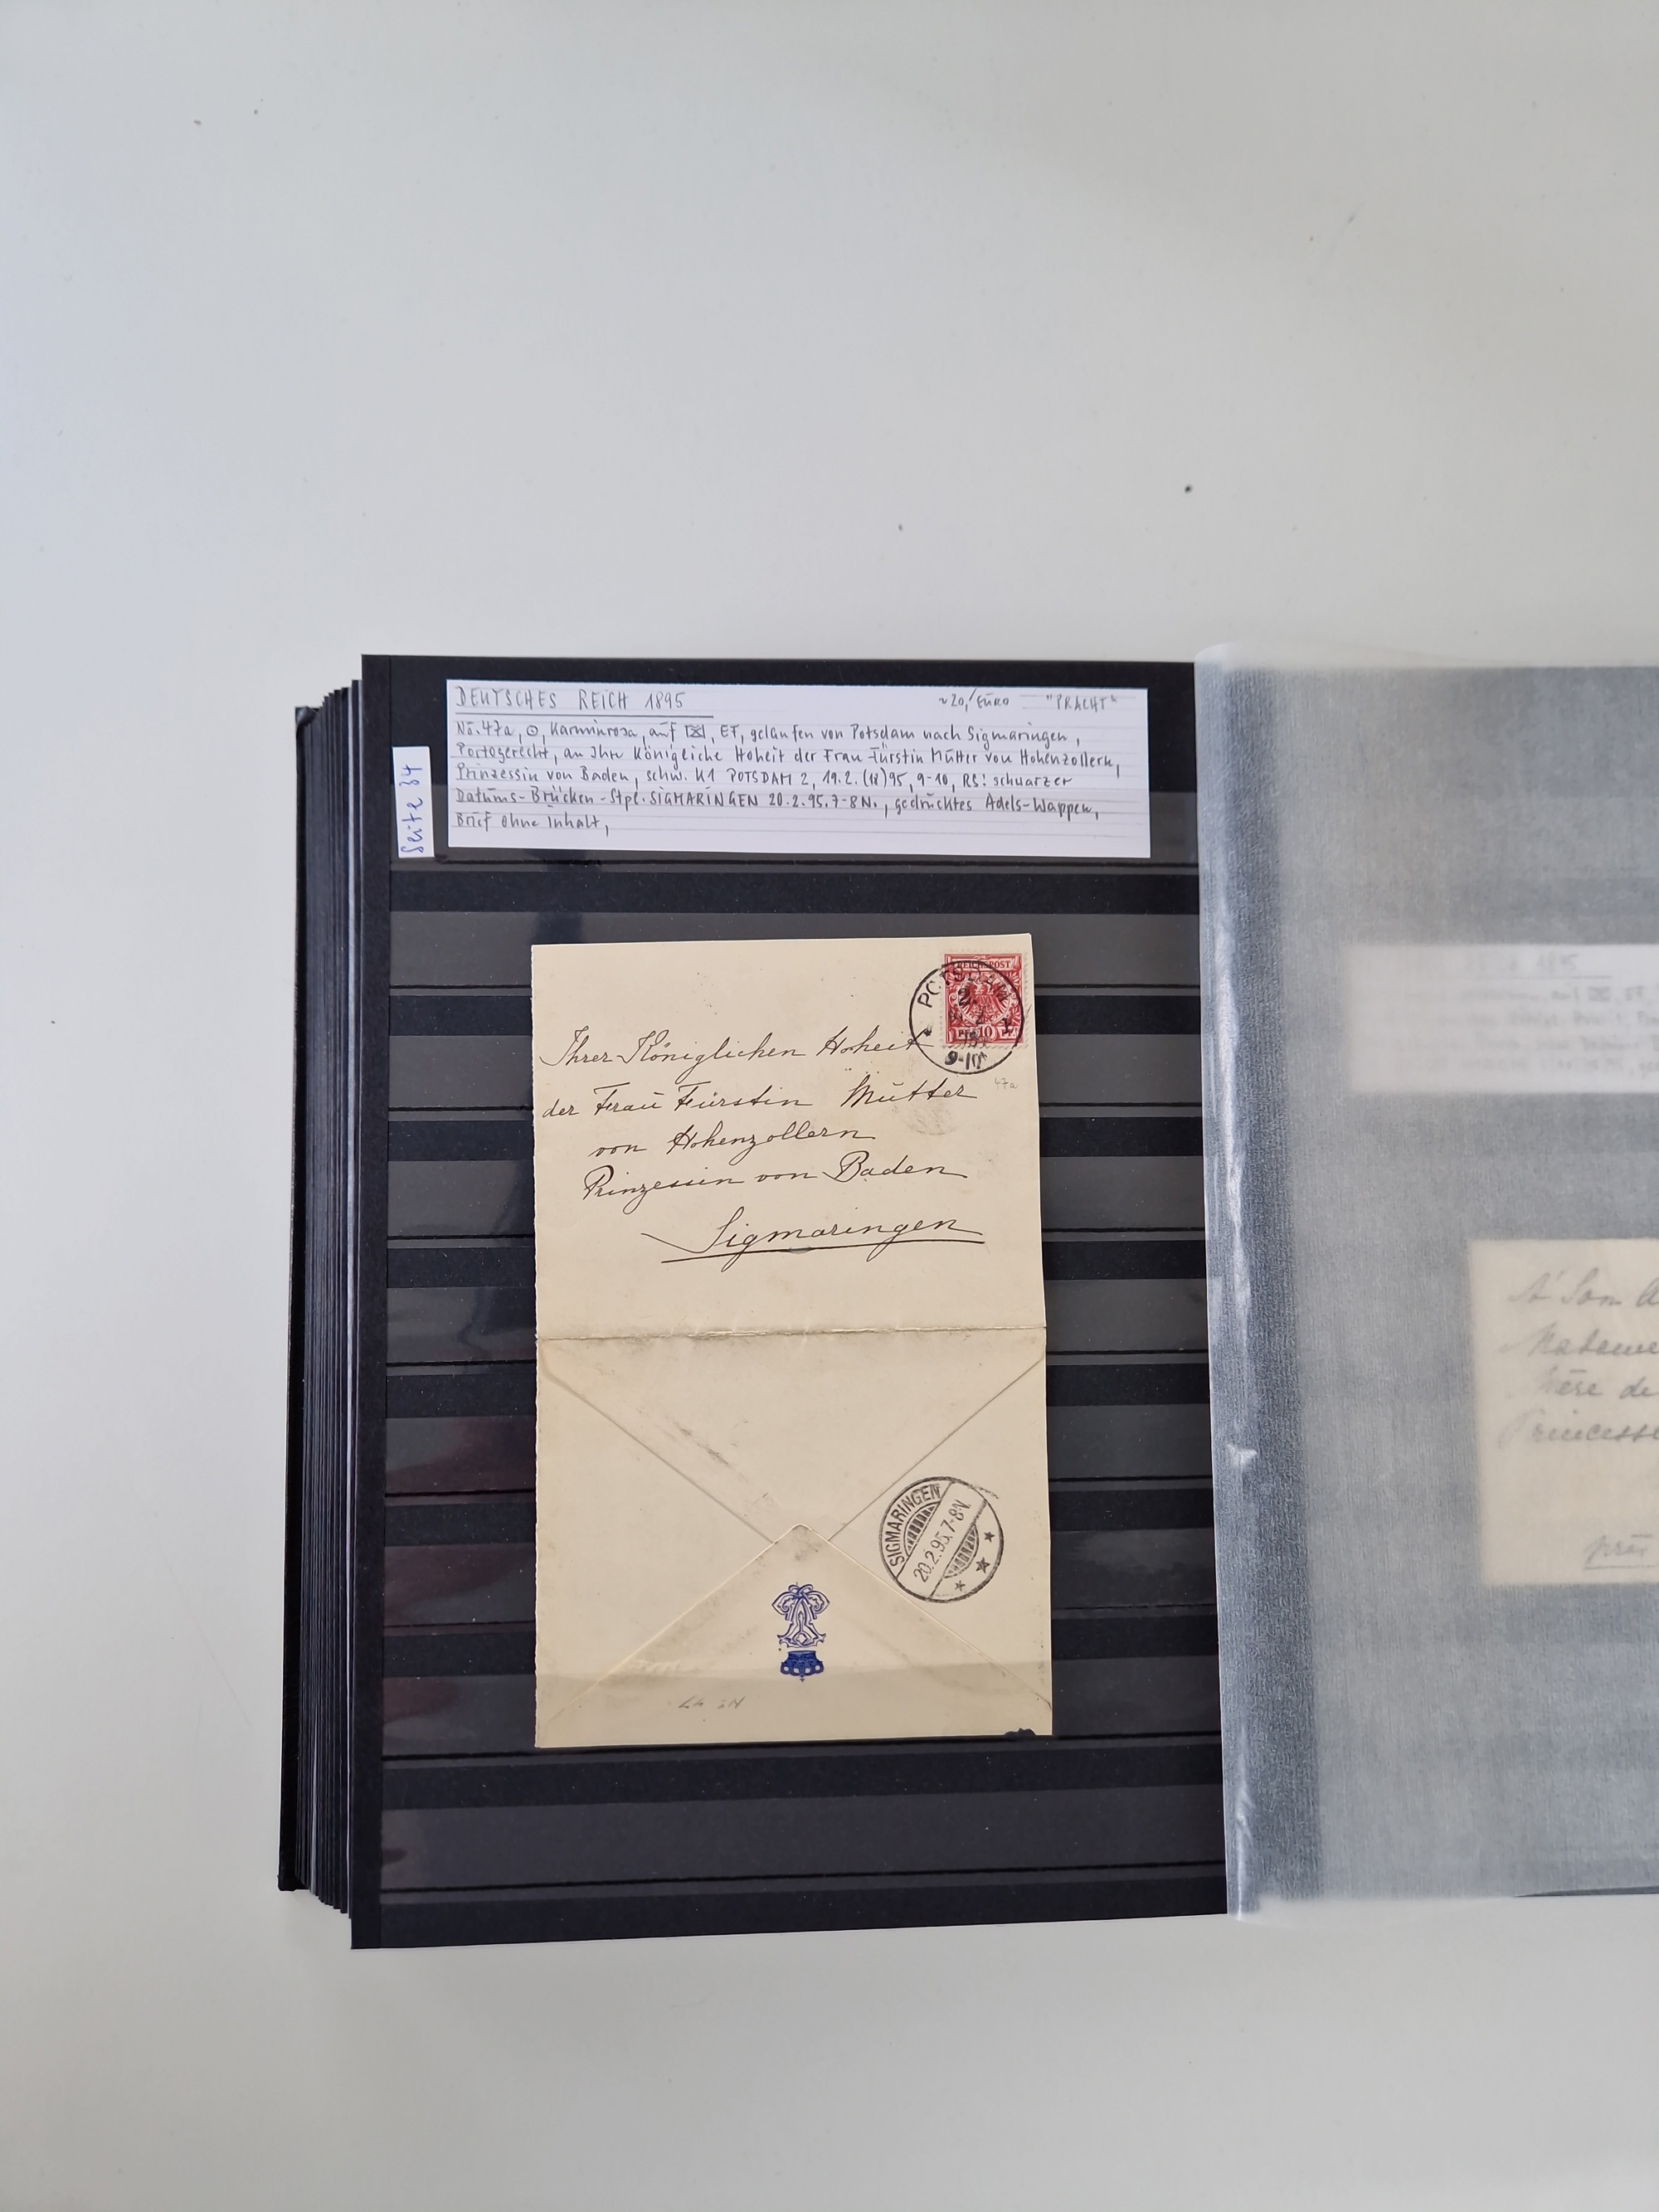 DEUTSCHES REICH 1895 ~20,/EURO "PRACHT"
No. 47a, ⊙, Karminrosa, auf ✉, EF, gelaufen von Potsdam nach Sigmaringen,
Portogerecht, an Ihre Königliche Hoheit der Frau Fürstin Mutter von Hohenzollern,
Prinzessin von Baden, schw. K1 POTSDAM 2, 19.2.(18)95, 9-10, RS: schwarzer
Datums-Brücken-Stpl. SIGMARINGEN 20.2.95.7-8N., gedrucktes Adels-Wappen,
Brief ohne Inhalt,
Seite 34
REICHSPOST
10
POTSDAM
2.
9-10
47a
Ihrer Königlichen Hoheit
der Frau Fürstin Mutter
von Hohenzollern
Prinzessin von Baden
Sigmaringen
SIGMARINGEN
20.2.95.7-8N.
A Son
Madame
Mère de
Princesse
près